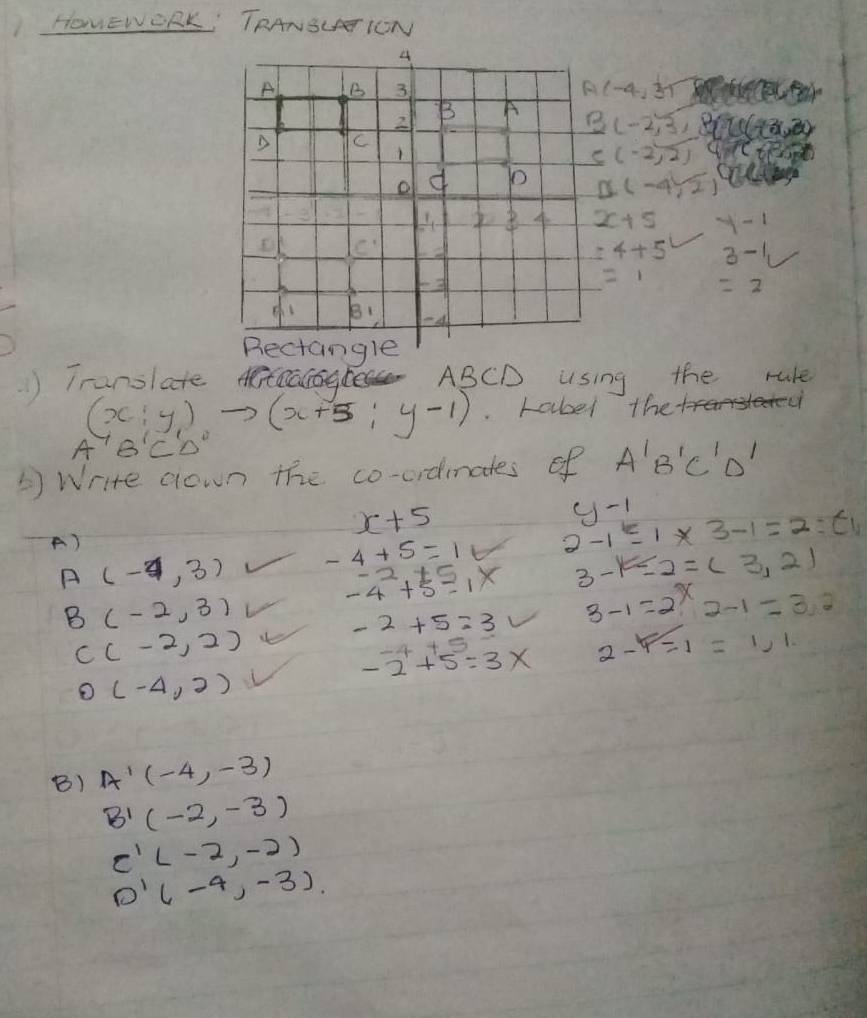 HOMEWORK: TRANSLATION
4
A B 3 B A
D C 2
1
0 C D
-1 2 3 4
D' C' -2
-3
A' B' -4
A(-4,3)
B(-2,3)
C(-2,2)
D(-4,2)
x+5 y-1
-4+5 3-1
= 1 = 2
Rectangle
a) Translate ABCD using the rule
(x;y) → (x+5; y-1). Label the translated
A'B'C'D'
b) Write down the co-ordinates of A'B'C'D'
x+5 y-1
A)
A (-4,3) -4+5=1 2-1=1 x 3-1=2
B (-2,3) -2+5 -4+5=1 x 3-1=2=(3,2)
C (-2,2) -2+5=3 3-1=2 x 2-1=3,2
D (-4,2) -4+5 -2+5=3 x 2-1=1 = 1,1
B) A'(-4,-3)
B'(-2,-3)
C'(-2,-2)
D'(-4,-3).